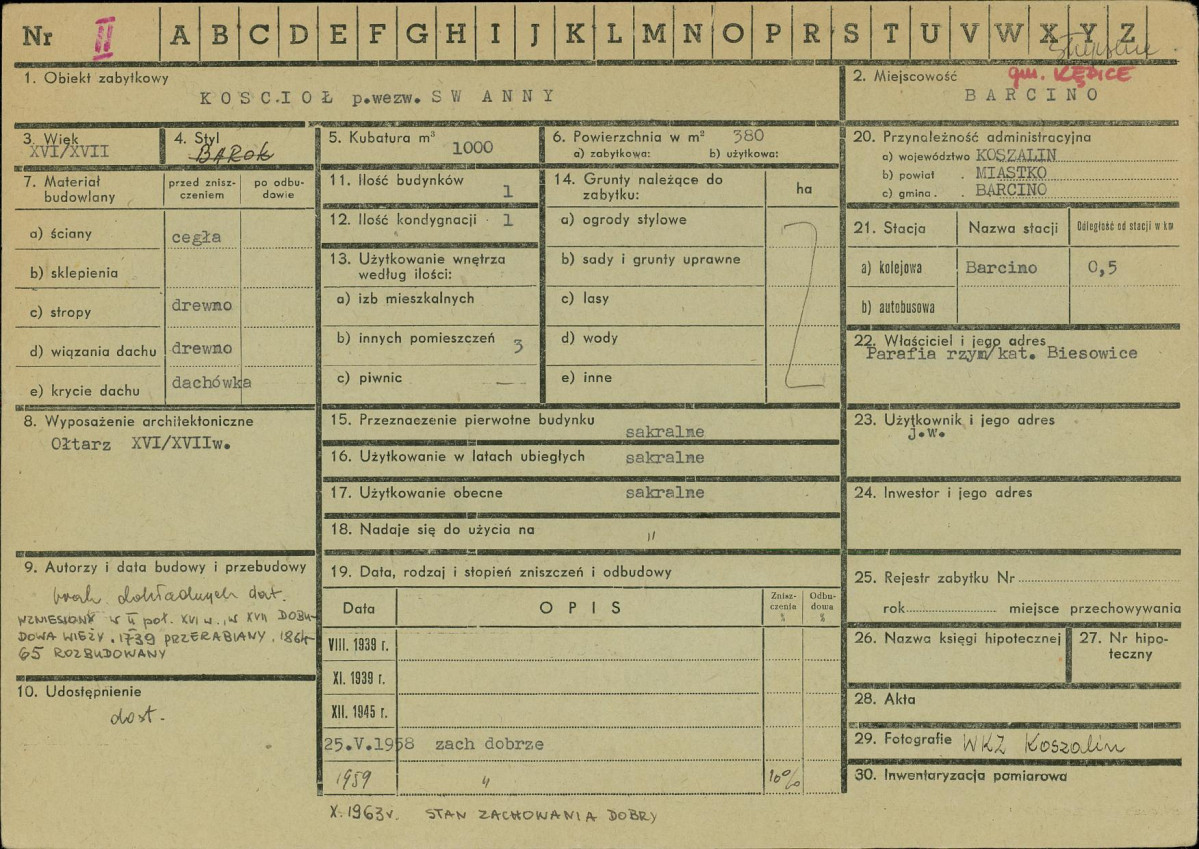 Nr II A B C D E F G H I J K L M N O P R S T U V W X Y Z
1. Obiekt zabytkowy
KOSCIOŁ p.wezw. SW ANNY
2. Miejscowość
gm. KĘPICE
BARCINO
3. Wiek
XVI/XVII
4. Styl
BAROK
5. Kubatura m³
1000
6. Powierzchnia w m² 380
a) zabytkowa: b) użytkowa:
7. Materiał budowlany
przed zniszczeniem
po odbudowie
a) ściany cegła
b) sklepienia
c) stropy drewno
d) wiązania dachu drewno
e) krycie dachu dachówka
8. Wyposażenie architektoniczne
Ołtarz XVI/XVIIw.
9. Autorzy i data budowy i przebudowy
brak dokładnych dat.
WZNIESIONY W II poł. XVI w., W XVII DOBU-
DOWA WIEŻY. 1739 PRZERABIANY, 1864-
65 ROZBUDOWANY
10. Udostępnienie
dost.
11. Ilość budynków 1
12. Ilość kondygnacji 1
13. Użytkowanie wnętrza
według ilości:
a) izb mieszkalnych
b) innych pomieszczeń 3
c) piwnic —
14. Grunty należące do
zabytku:
ha
a) ogrody stylowe
b) sady i grunty uprawne
c) lasy
d) wody
e) inne
15. Przeznaczenie pierwotne budynku
sakralne
16. Użytkowanie w latach ubiegłych sakralne
17. Użytkowanie obecne sakralne
18. Nadaje się do użycia na "
19. Data, rodzaj i stopień zniszczeń i odbudowy
Data OPIS Zniszczenia % Odbudowa %
VIII. 1939 r.
XI. 1939 r.
XII. 1945 r.
25.V.1958 zach dobrze
1959 " 10%
X. 1963 r. STAN ZACHOWANIA DOBRY
20. Przynależność administracyjna
a) województwo KOSZALIN
b) powiat . MIASTKO
c) gmina . BARCINO
21. Stacja Nazwa stacji Odległość od stacji w km
a) kolejowa Barcino 0,5
b) autobusowa
22. Właściciel i jego adres
Parafia rzym/kat. Biesowice
23. Użytkownik i jego adres
j.w.
24. Inwestor i jego adres
25. Rejestr zabytku Nr
rok miejsce przechowywania
26. Nazwa księgi hipotecznej
27. Nr hipo-
teczny
28. Akta
29. Fotografie WKZ Koszalin
30. Inwentaryzacja pomiarowa